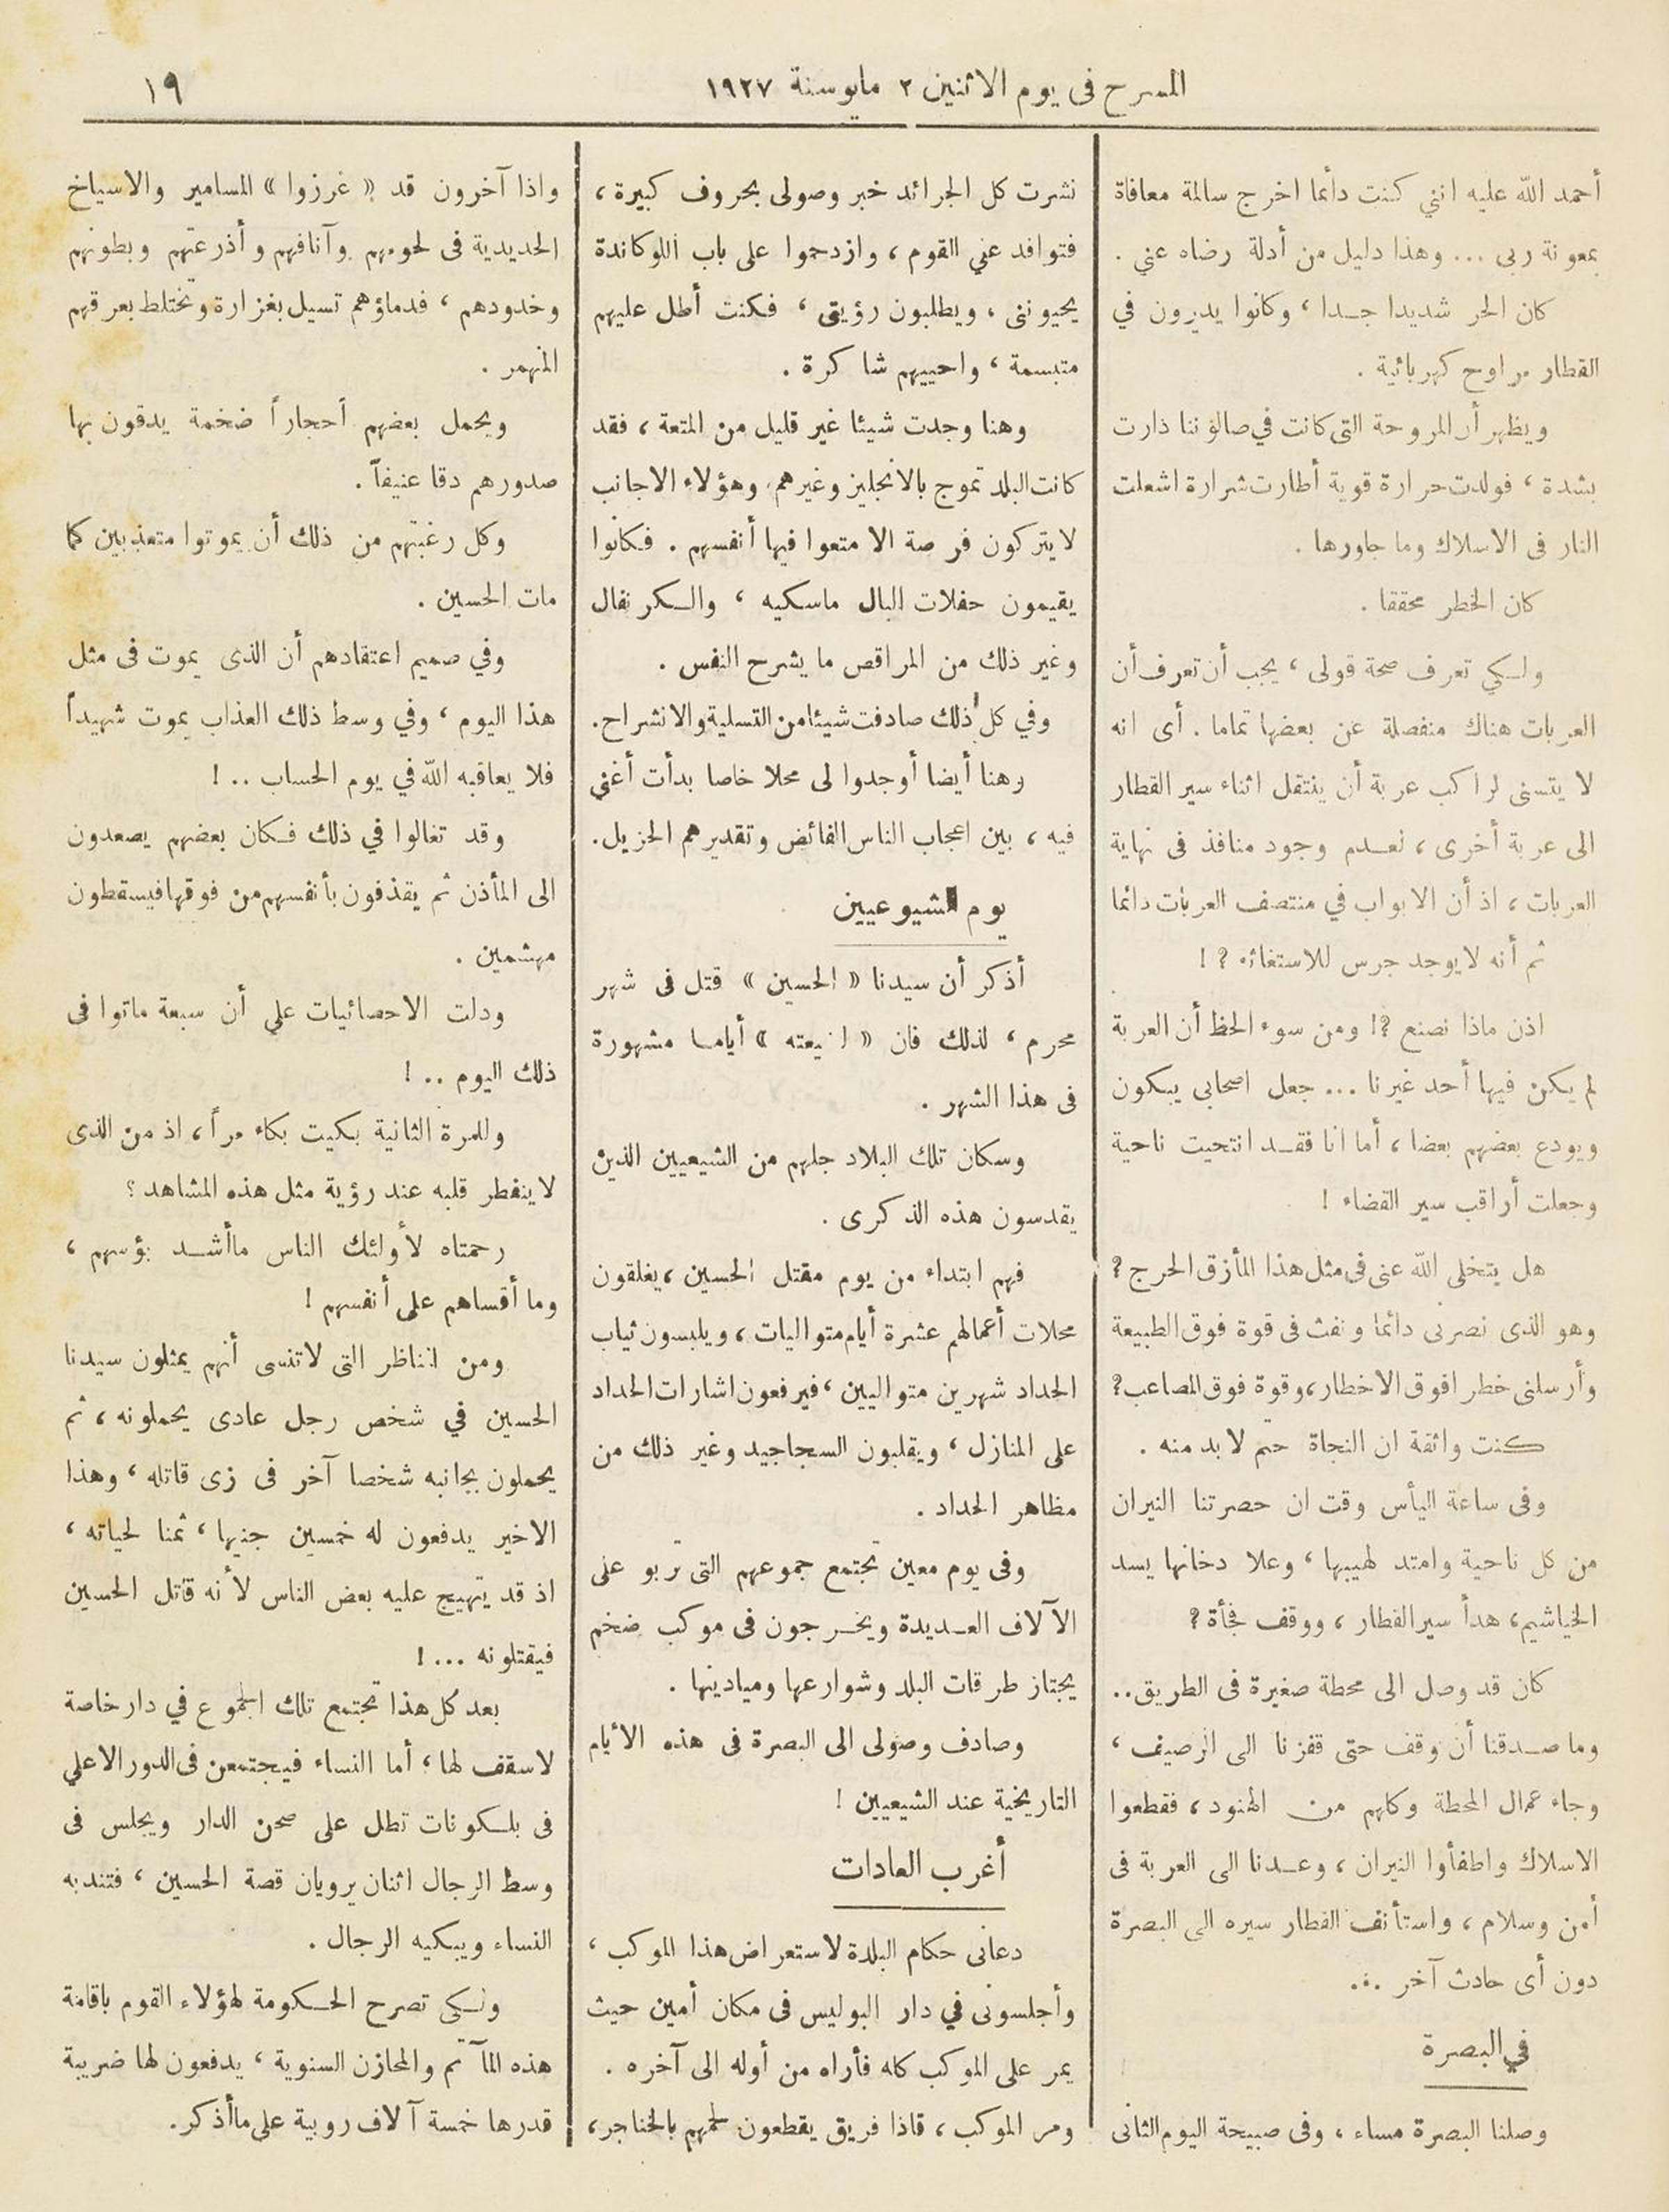 المسرح فى يوم الاثنين ٢ مايو سنة ١٩٢٧
١٩
أحمد الله عليه اننى كنت دأمًا اخرج سالمة معافاة
بمعونة ربى ... وهذا دليل من أدلة رضاه عني .
كان الحر شديدا جدا ، وكانوا يديرون في
القطار مراوح كهربائية .
ويظهر أن المروحة التى كانت في صالوننا دارت
بشدة ، فولدت حرارة قوية أطارت شرارة اشعلت
النار فى الاسلاك وما جاورها .
كان الخطر محققا .
ولكي تعرف صحة قولى ، يجب أن تعرف أن
العربات هناك منفصلة عن بعضها تماما . أى انه
لا يتسنى لراكب عربة أن ينتقل اثناء سير القطار
الى عربة أخرى ، لعدم وجود منافذ فى نهاية
العربات ، اذ أن الابواب في منتصف العربات دائما
ثم أنه لا يوجد جرس للاستغاثه ؟ !
اذن ماذا نصنع ؟! ومن سوء الحظ أن العربة
لم يكن فيها أحد غيرنا ... جعل اصحابى يبكون
ويودع بعضهم بعضا ، أما انا فقد انتحيت ناحية
وجعلت أراقب سير القضاء !
هل يتخلى الله عنى فى مثل هذا المأزق الحرج ؟
وهو الذى نصرنى دائما ونفث فى قوة فوق الطبيعة
وأرسلنى خطرا فوق الاخطار ، وقوة فوق المصاعب ؟
كنت واثقة ان النجاة حتم لابد منه .
وفى ساعة اليأس وقت ان حصرتنا النيران
من كل ناحية وامتد لهيبها ، وعلا دخانها يسد
الخياشيم ، هدأ سير القطار ، ووقف فجأة ؟
كان قد وصل الى محطة صغيرة فى الطريق ..
وما صدقنا أن وقف حتى قفزنا الى الرصيف ،
وجاء عمال المحطة وكلهم من الهنود ، فقطعوا
الاسلاك واطفأوا النيران ، وعدنا الى العربة فى
أمن وسلام ، واستأنف القطار سيره الى البصرة
دون أى حادث آخر ...
في البصرة
وصلنا البصرة مساء ، وفى صبيحة اليوم الثانى
نشرت كل الجرائد خبر وصولى بحروف كبيرة ،
فتوافد عني القوم ، وازدحموا على باب اللوكاندة
يحيوننى ، ويطلبون رؤيتى ، فكنت أطل عليهم
متبسمة ، واحييهم شاكرة .
وهنا وجدت شيئا غير قليل من المتعة ، فقد
كانت البلد تموج بالانجليز وغيرهم ، وهؤلاء الاجانب
لا يتركون فرصة الا متعوا فيها أنفسهم . فكانوا
يقيمون حفلات البال ماسكيه ، والكرنفال
وغير ذلك من المراقص ما يشرح النفس .
وفي كل ذلك صادفت شيئا من التسلية والانشراح .
وهنا أيضا أوجدوا لى محلا خاصا بدأت أغنى
فيه ، بين اعجاب الناس الفائض وتقديرهم الجزيل .
يوم الشيوعيين
أذكر أن سيدنا « الحسين » قتل فى شهر
محرم ، لذلك فان « لشيعته » أياما مشهورة
فى هذا الشهر .
وسكان تلك البلاد جلهم من الشيعيين الذين
يقدسون هذه الذكرى .
فهم ابتداء من يوم مقتل الحسين ، يغلقون
محلات أعمالهم عشرة أيام متواليات ، ويلبسون ثياب
الحداد شهرين متواليين ، فيرفعون اشارات الحداد
على المنازل ، ويقلبون السجاجيد وغير ذلك من
مظاهر الحداد .
وفى يوم معين تجتمع جموعهم التى تربو على
الآلاف العديدة ويخرجون فى موكب ضخم
يجتاز طرقات البلد وشوارعها وميادينها .
وصادف وصولى الى البصرة فى هذه الأيام
التاريخية عند الشيعيين !
أغرب العادات
دعانى حكام البلدة لاستعراض هذا الموكب ،
وأجلسونى في دار البوليس فى مكان أمين حيث
يمر على الموكب كله فأراه من أوله الى آخره .
ومر الموكب ، فاذا فريق يقطعون لحمهم بالخناجر ،
واذا آخرون قد « غرزوا » المسامير والاسياخ
الحديدية فى لحومهم وآنافهم وأذرعتهم وبطونهم
وخدودهم ، فدماؤهم تسيل بغزارة وتختلط بعرقهم
المنهمر .
ويحمل بعضهم أحجاراً ضخمة يدقون بها
صدورهم دقا عنيفاً .
وكل رغبتهم من ذلك أن يموتوا متعذبين كما
مات الحسين .
وفي صميم اعتقادهم أن الذى يموت فى مثل
هذا اليوم ، وفي وسط ذلك العذاب يموت شهيداً
فلا يعاقبه الله في يوم الحساب .. !
وقد تغالوا في ذلك فكان بعضهم يصعدون
الى المأذن ثم يقذفون بأنفسهم من فوقها فيسقطون
مهشمين .
ودلت الاحصائيات علي أن سبعة ماتوا فى
ذلك اليوم .. !
وللمرة الثانية بكيت بكاء مراً ، اذ من الذى
لا ينفطر قلبه عند رؤية مثل هذه المشاهد ؟
رحمتاه لأولئك الناس ما أشد بؤسهم ،
وما أقساهم على أنفسهم !
ومن المناظر التى لا تنسى أنهم يمثلون سيدنا
الحسين في شخص رجل عادى يحملونه ، ثم
يحملون بجانبه شخصا آخر فى زى قاتله ، وهذا
الاخير يدفعون له خمسين جنيها ، ثمنا لحياته ،
اذ قد يتهيج عليه بعض الناس لأنه قاتل الحسين
فيقتلونه ... !
بعد كل هذا تجتمع تلك الجموع في دار خاصة
لا سقف لها ، أما النساء فيجتمعن فى الدور الاعلي
فى بلكونات تطل على صحن الدار ويجلس فى
وسط الرجال اثنان يرويان قصة الحسين ، فتندبه
النساء ويبكيه الرجال .
ولكى تصرح الحكومة لهؤلاء القوم باقامة
هذه المآتم والمحازن السنوية ، يدفعون لها ضريبة
قدرها خمسة آلاف روبية على ما أذكر .